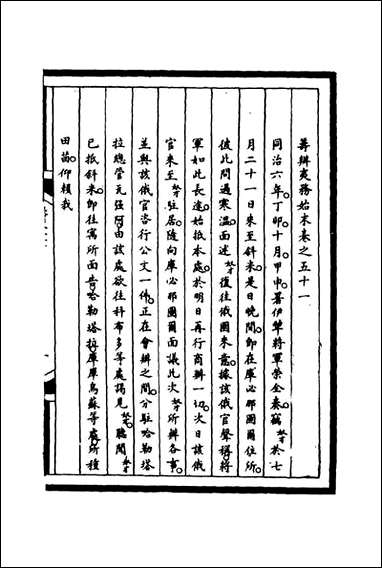 籌辦夷務始末卷之五十一
同治六年。丁卯。十月。甲申。署伊犂將軍榮全奏。竊奴才於七
月二十一日來至斜米。是日晚間。即在庫必那圖爾住所。
彼此問過寒溫。面述奴才復往俄國來意。據該俄官聲稱。將
軍如此長途。始抵本處。於明日再行商辦一切。次日該俄
官來至奴才駐居。隨向庫必那圖爾面議此次奴才所辦各事。
並與該俄官咨行公文一件。正在會辦之間。分駐哈勒塔
拉總管尤强阿。由該處欲往科布多等處謁見奴才。聽聞奴才
已抵斜米。即往寓所面告。哈勒塔拉。庫庫烏蘇等處。所種
田苗。仰賴我